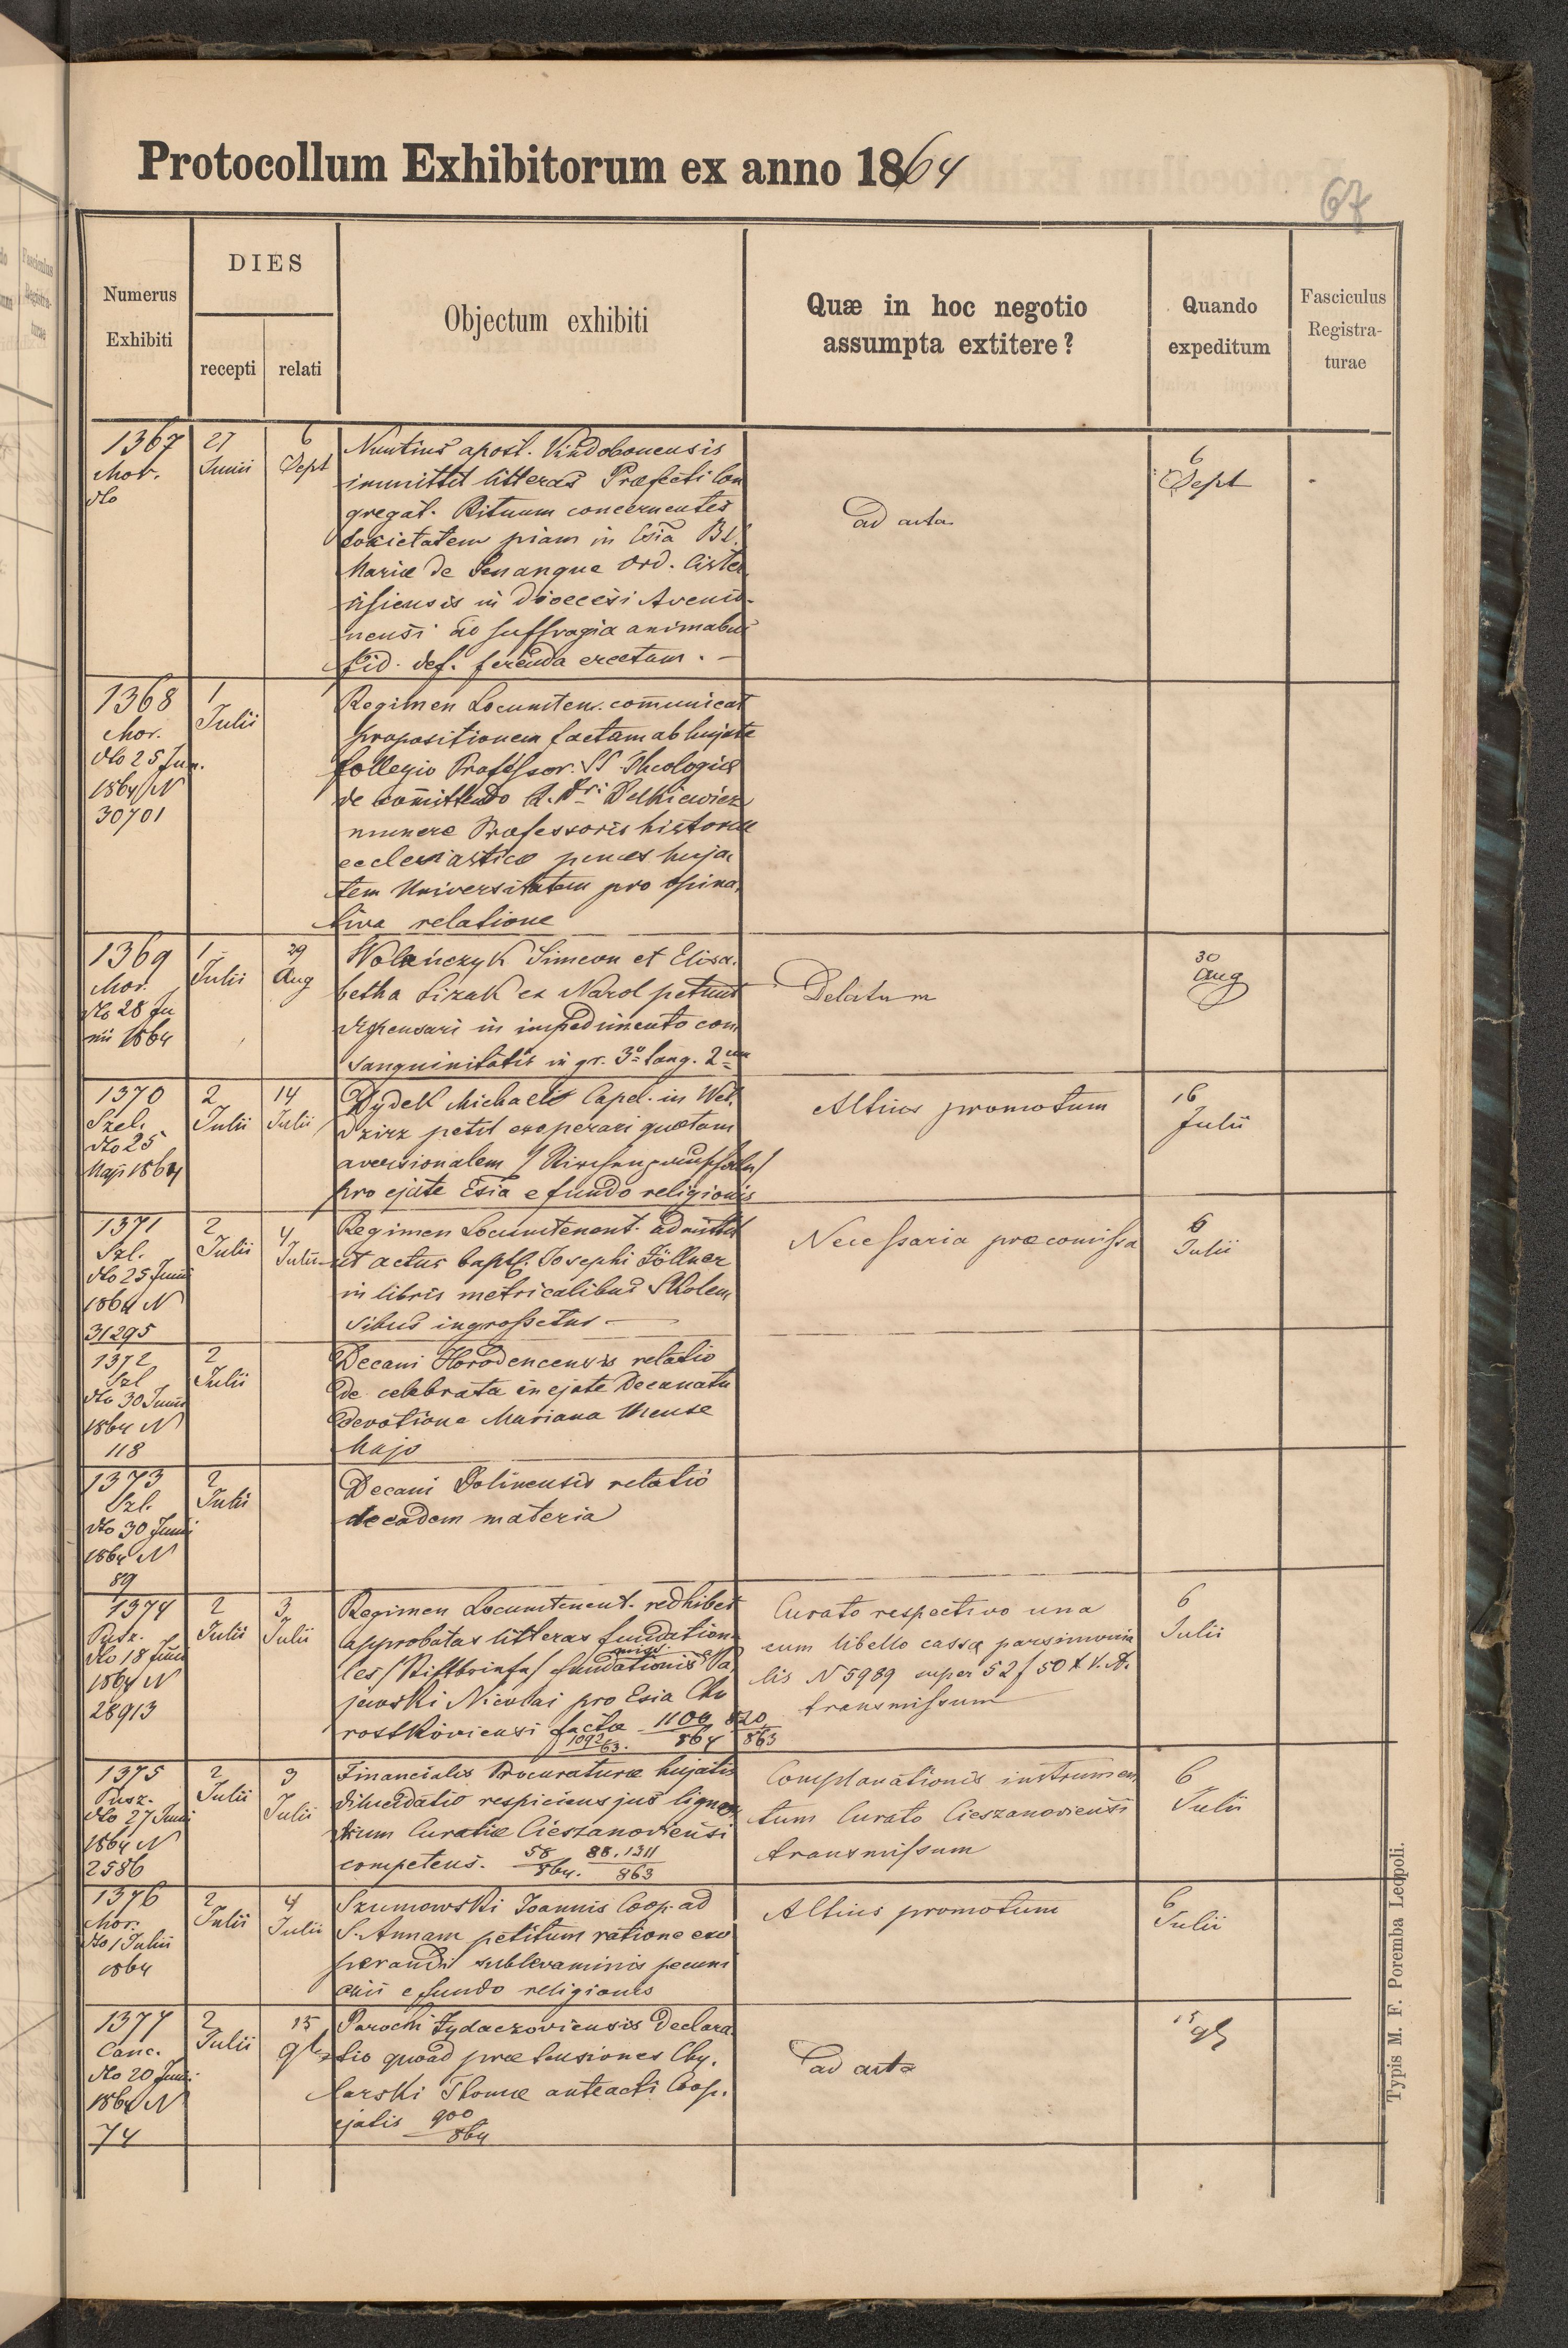 Protocollum Exhibitorum ex anno 1864
67
Numerus
Exhibiti
DIES
recepti
relati
Objectum exhibiti
Quæ in hoc negotio
assumpta extitere?
Quando
expeditum
Fasciculus
Registra-
turae
1367
Mor.
dto
27
Junii
6
Sept
Nuntius apost. Vindobonensis
immittit litteras Præfecti Con
gregat. Rituum concernentes
societatem piam in Esia B.V.
Mariæ de Senanque Ord. Cister
in Dioecesi Avenio-
nensi ad suffragia animabus
fid. def. ferenda erectam. -
ad acta
6
Sept
1368
Mor.
dto 25 Jun.
1864 N
30701
1
Julii
Regimen Locumten. communicat
propositionem factam ab hujate
Collegio Professor. SS Theologiæ
de committendo R. Dri Delkiewicz
munere Professoris historiæ
ecclesiasticæ penes huja
tem Universitatem pro opina
tiva relatione
1369
Mor.
dto 28 Ju
nii 1864
1
Julii
29
Aug
Wolańczyk Simeon et Elisa.
betha Lizak ex Narol petunt
dispensari in impedimento con
sanguinitatis in gr. 3o tang. 2um
Delatum
30
Aug
1370
Szel.
dto 25
Maji 1864
2
Julii
14
Julii
Dydek Michaelis Capel. in Wet.
dzirz petit exoperari quotam
aversionalem
pro ejate Esia e fundo religionis
Altius promotum
16
Julii
1371
Szl.
dto 25 Junii
1864 N
31295
2
Julii
4
Julii
Regimen Locumtenent. admittit
ut actus bapt. Josephi Zöllner
in libris metricalibus Skolem
sibus ingrossetur -
Necessaria præcomissa
6
Julii
1372
Szl
dto 30 Junii
1864 N
118
2
Julii
Decani Horodencensis relatio
de celebrata in ejate Decanatu
devotione Mariana Mense
Majo
1373
Szl.
dto 30 Junii
1864 N
89
2
Julii
Decani Dolinensis relatio
de eadem materia
1374
Pusz.
dto 18 Junii
1864 N
28913
2
Julii
3
Julii
Regimen Locumtenent. redhibet
approbatas litteras fundation
les /Stiftbriefe/ fundationis miss. Pa
jewski Nicolai pro Esia Cho
rostkoviensi factæ 1100/864 820/863
1092/63.
Curato respectivo una
cum libello cassæ parsimonia
lis N 5989 super 52 f 50 x V.A.
transmissum
6
Julii
1375
Pusz.
dto 27 Junii
1864 N
2586
2
Julii
3
Julii
Financialis Procuraturæ hujatis
dilucidatio respiciens jus ligna
tium Curatiæ Cieszanoviensi
competens. 58/864. 88.1311/863
Complanationis instrumen
tum Curato Cieszanoviensi
transmissum
6
Julii
1376
Mor.
dto 1 Julii
1864
2
Julii
4
Julii
Szumowski Joannis Coop. ad
S. Annam petitum ratione exo
perandi sublevaminis pecuni
arii e fundo religionis
Altius promotum
6
Julii
1377
Canc.
dto 20 Junii
1864 N
74
2
Julii
15
Parochi Zydaczoviensis declara
tio quoad prætensiones Chy.
larski Thomæ anteacti Coop.
ejatis 900/864
ad acta
15
Typis M. F. Poremba Leopoli.